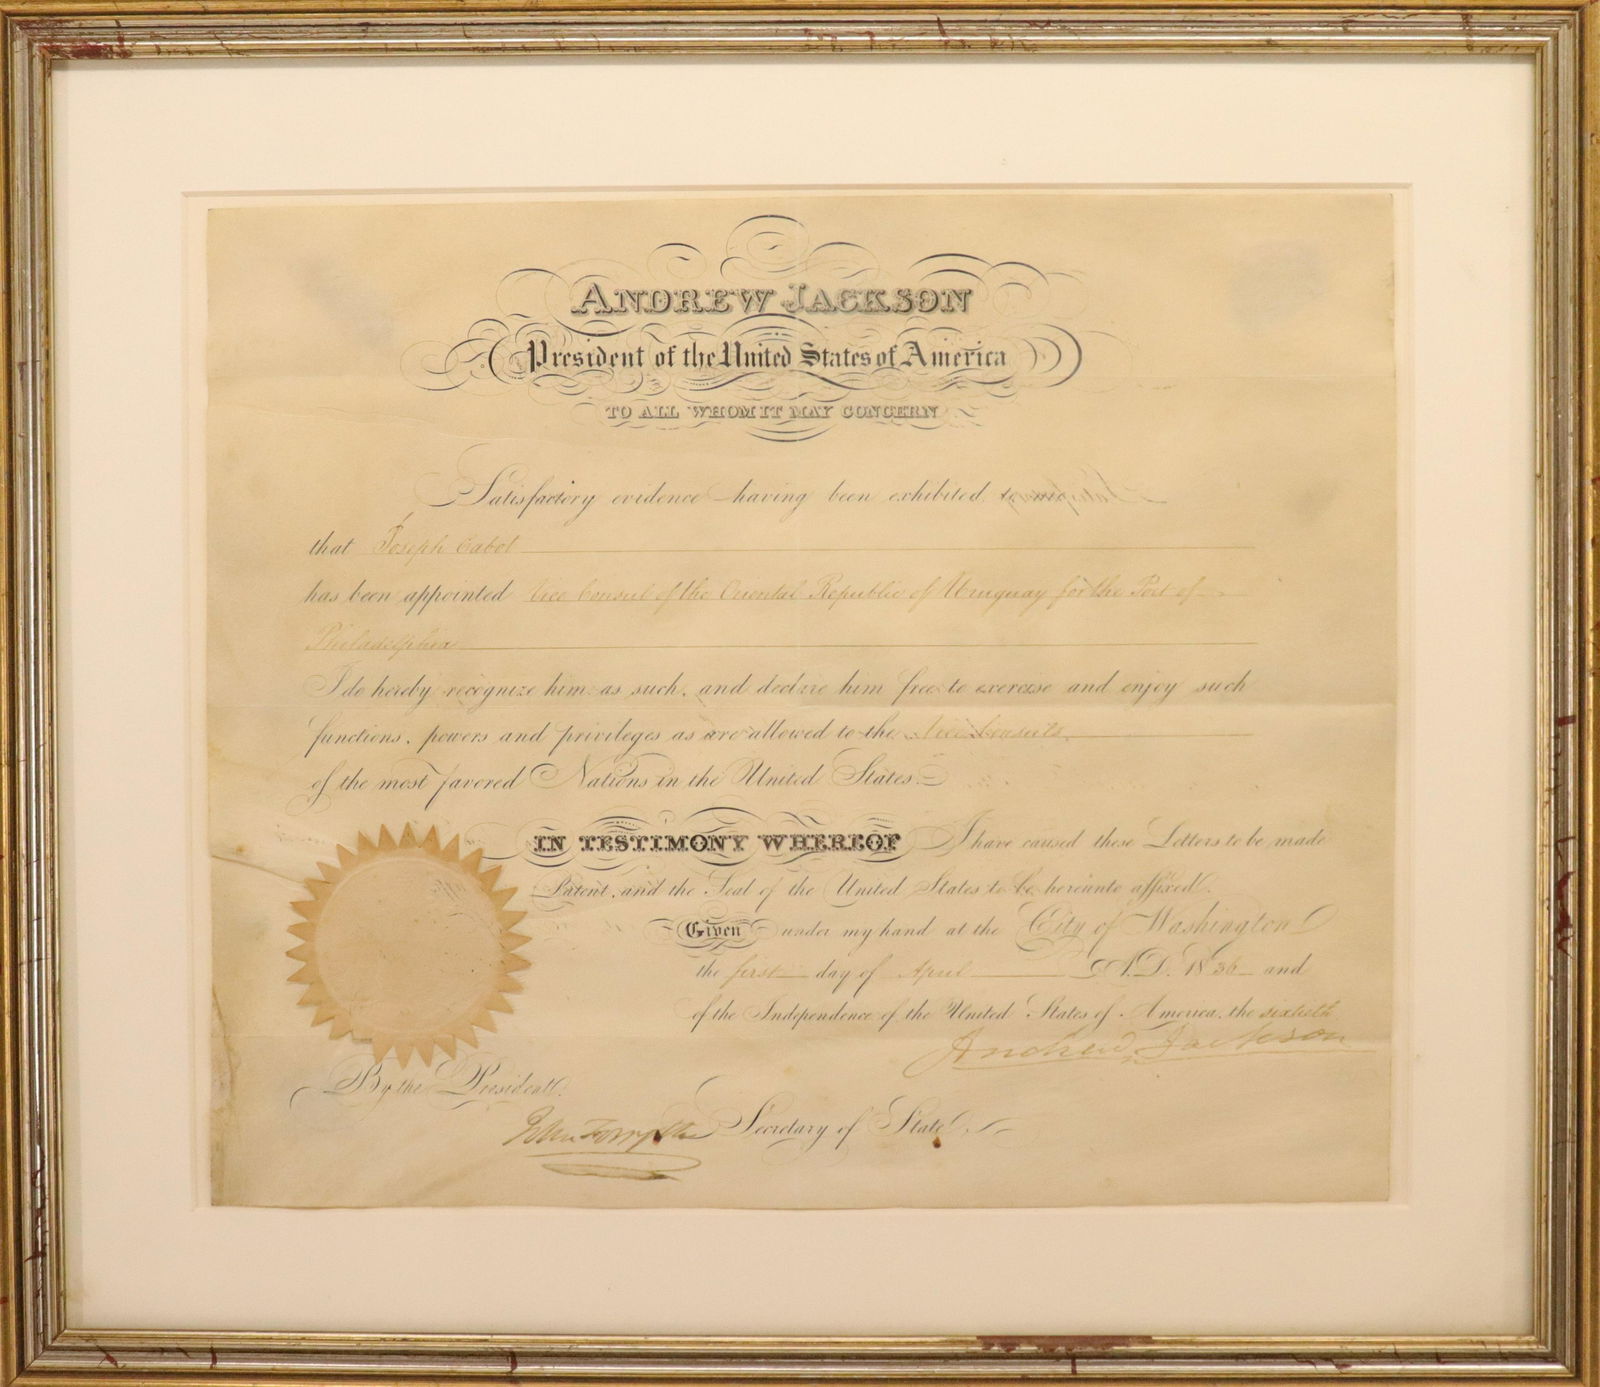 ANDREW JACKSON
President of the United States of America
TO ALL WHOM IT MAY CONCERN
Satisfactory evidence having been exhibited to me
that Joseph Cabot
has been appointed Vice Consul of the Oriental Republic of Uruguay for the Port of
Philadelphia
I do hereby recognize him as such, and declare him free to exercise and enjoy such
functions, powers and privileges as are allowed to the Vice Consuls
of the most favored Nations in the United States.
IN TESTIMONY WHEREOF I have caused these Letters to be made
Patent, and the Seal of the United States to be hereunto affixed.
Given under my hand at the City of Washington
the first day of April A.D. 1836 and
of the Independence of the United States of America, the sixtieth
Andrew Jackson
By the President.
John Forsyth Secretary of State.